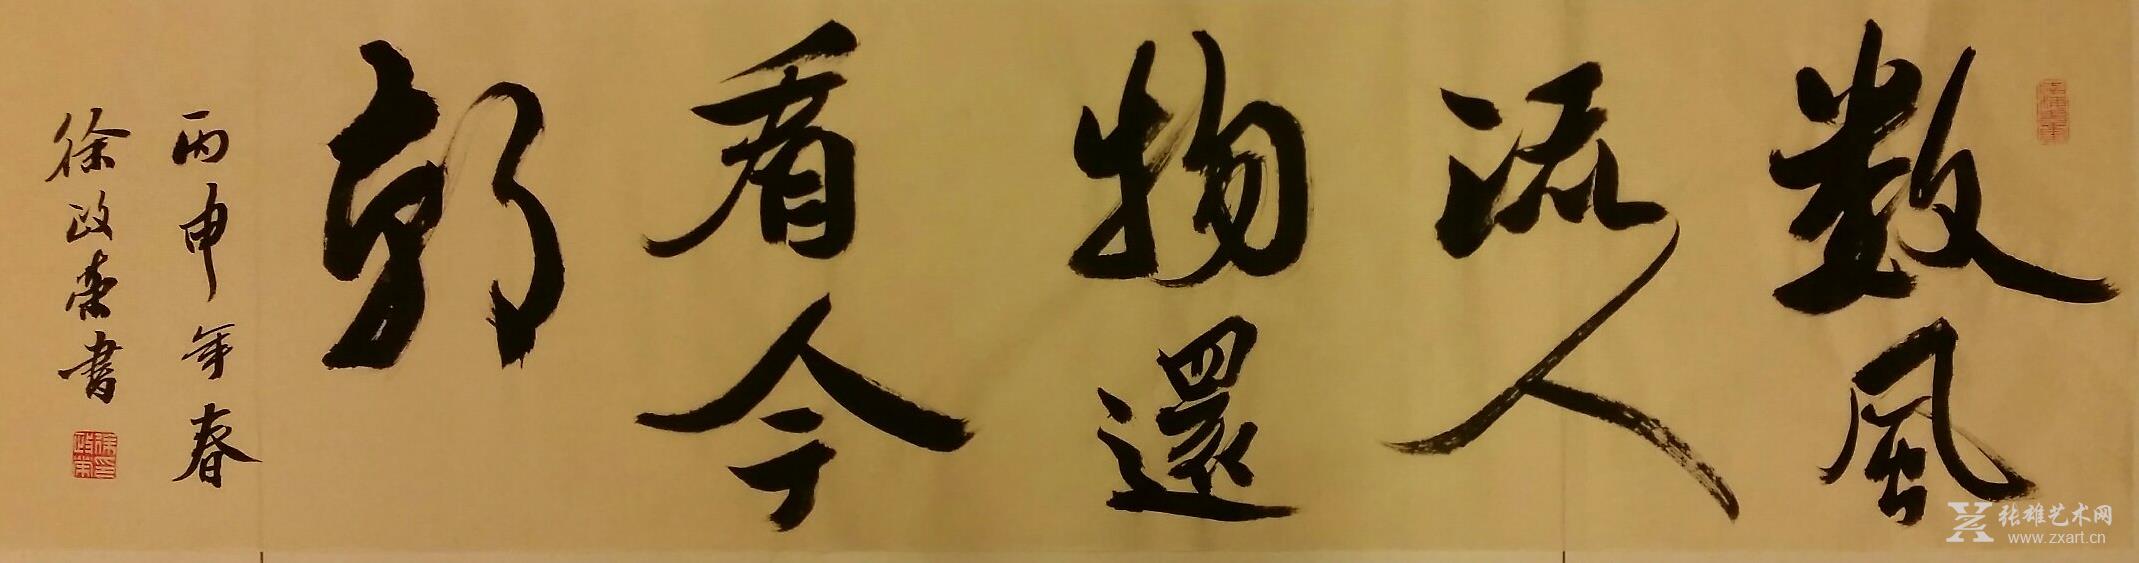 数風
流人
物還
看今
朝
丙申年春
徐政榮書
张雄艺术网
www.zxart.cn